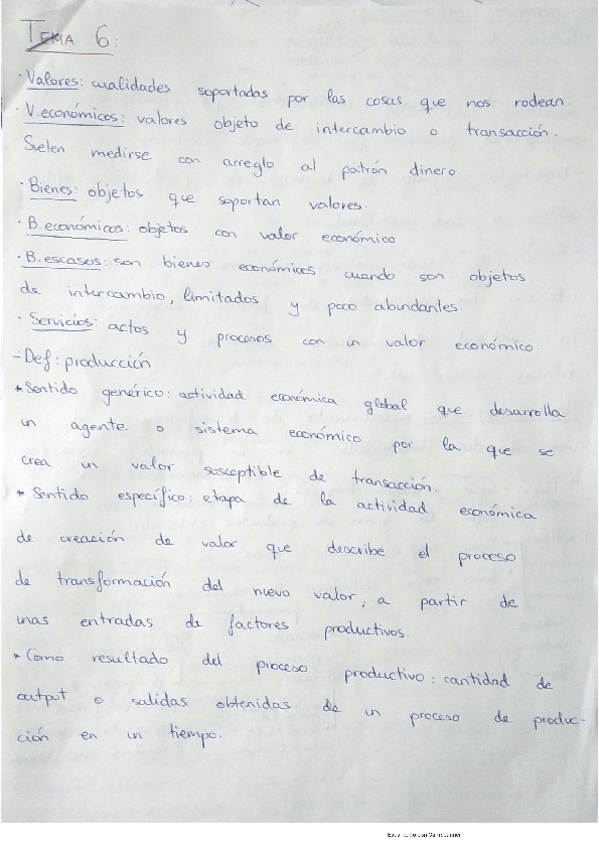 TEMA 6:
· Valores: cualidades soportadas por las cosas que nos rodean.
· V.económicos: valores objeto de intercambio o transacción.
Suelen medirse con arreglo al patrón dinero.
· Bienes: objetos que soportan valores.
· B.económicos: objetos con valor económico
· B.escasos: son bienes económicos cuando son objetos
de intercambio, limitados y poco abundantes
· Servicios: actos y procesos con un valor económico.
- Def: producción
* Sentido genérico: actividad económica global que desarrolla
un agente o sistema económico por la que se
crea un valor susceptible de transacción.
* Sentido específico: etapa de la actividad económica
de creación de valor que describe el proceso
de transformación del nuevo valor, a partir de
unas entradas de factores productivos.
* Como resultado del proceso productivo: cantidad de
output o salidas obtenidas de un proceso de produc-
ción en un tiempo.